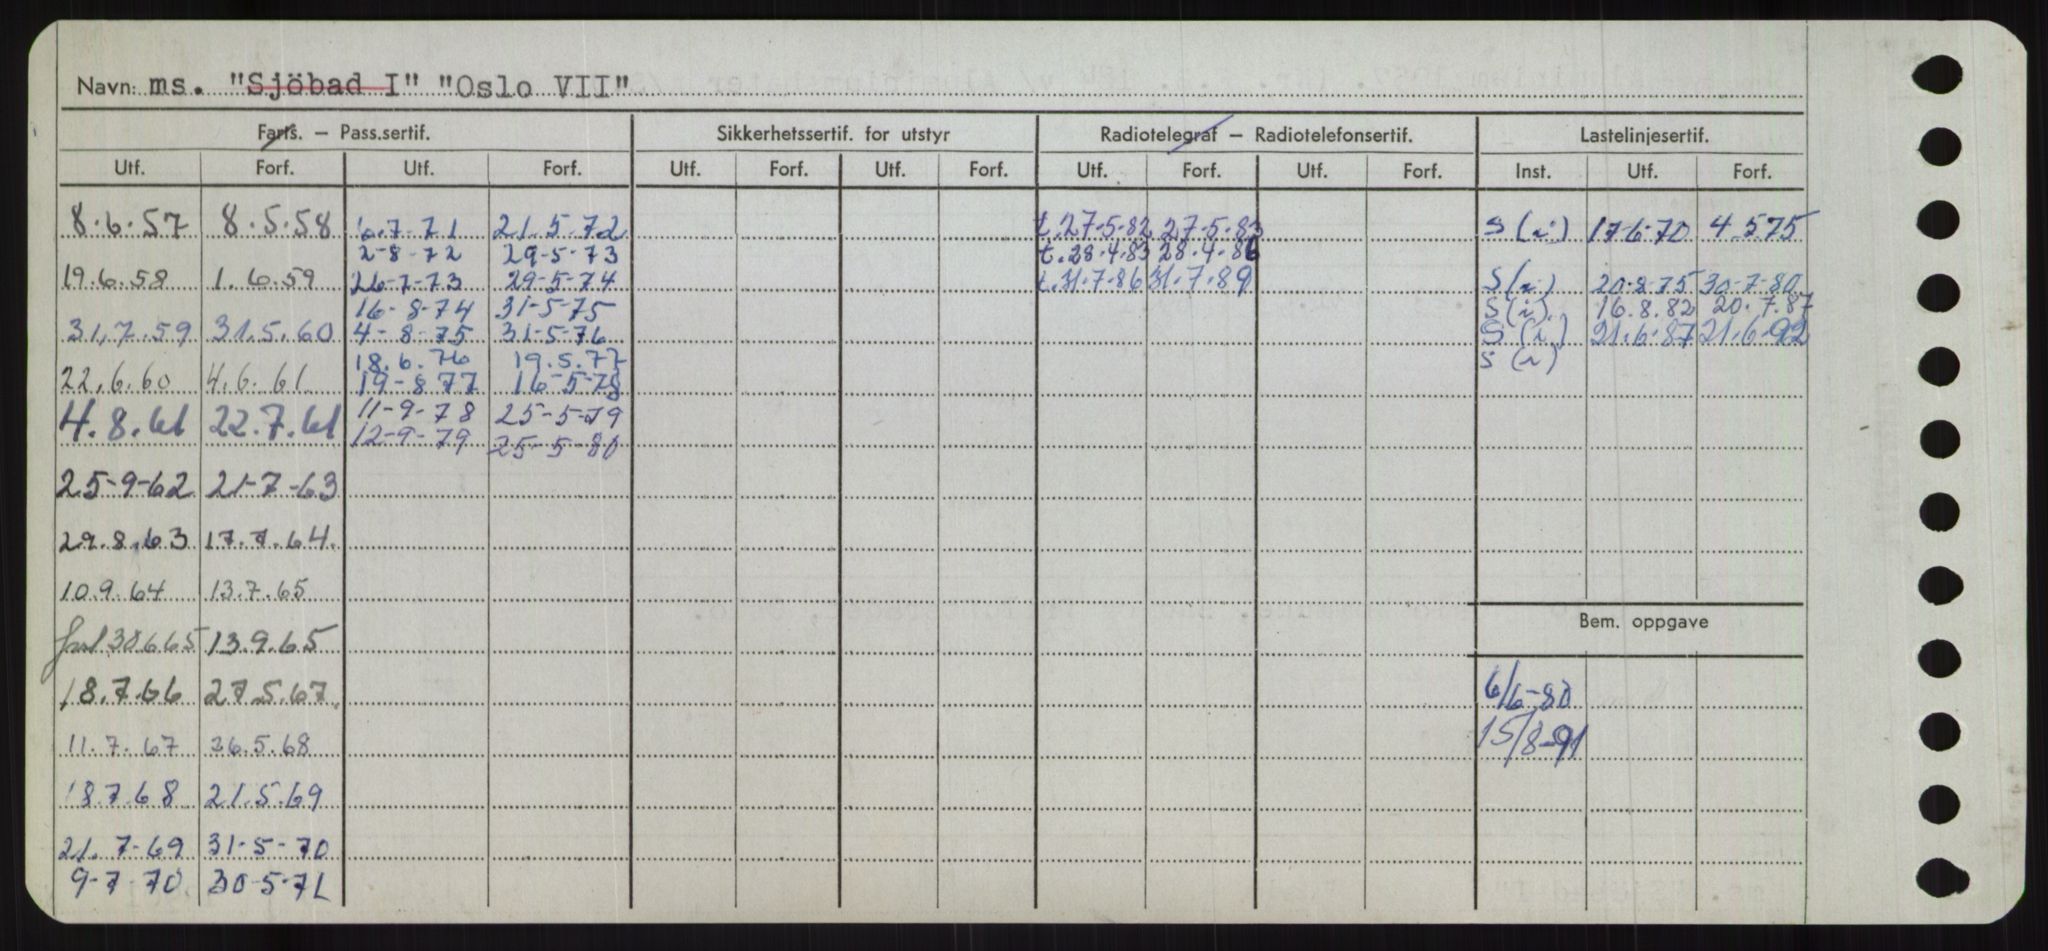 Navn: ms. "Sjöbad I" "Oslo VII"
Farts. – Pass.sertif. Sikkerhetssertif. for utstyr Radiotelegraf – Radiotelefonsertif. Lastelinjesertif.
Utf. Forf. Utf. Forf. Utf. Forf. Utf. Forf. Utf. Forf. Utf. Forf. Inst. Utf. Forf.
8.6.57 8.5.58 6.7.71 21.5.72 t.27-5-82 27-5-83 S (i) 17-6-70 4.5.75
2-8-72 29-5-73 t.28.4.83 28.4.86
19.6.58 1.6.59 26-7-73 29-5-74 t.31.7.86 31.7.89 S (i) 20-8-75 30-7-80
16-8-74 31-5-75 S (i) 16.8.82 20.7.87
31.7.59 31.5.60 4-8-75 31-5-76 S (i) 21.6.87 21.6.92
18.6.76 19.5.77 S (i)
22.6.60 4.6.61 19-8-77 16-5-78
4.8.61 22.7.61 11-9-78 25-5-79
12-9-79 25-5-80
25-9-62 21-7-63
29.8.63 17.7.64.
10.9.64 13.7.65
30665 13.9.65
Bem. oppgave
18.7.66 27.5.67. 6/6-80
11.7.67 26.5.68 15/8-91
18.7.68 21.5.69
21.7-69 31-5-70
9-7-70 30-5-71